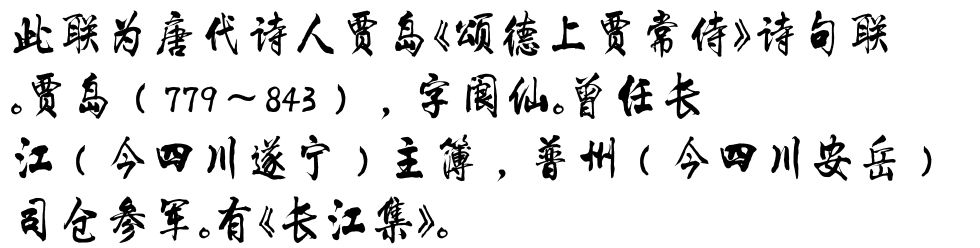 此联为唐代诗人贾岛《颂德上贾常侍》诗句联
。贾岛（779～843），字阆仙。曾任长
江（今四川遂宁）主簿，普州（今四川安岳）
司仓参军。有《长江集》。